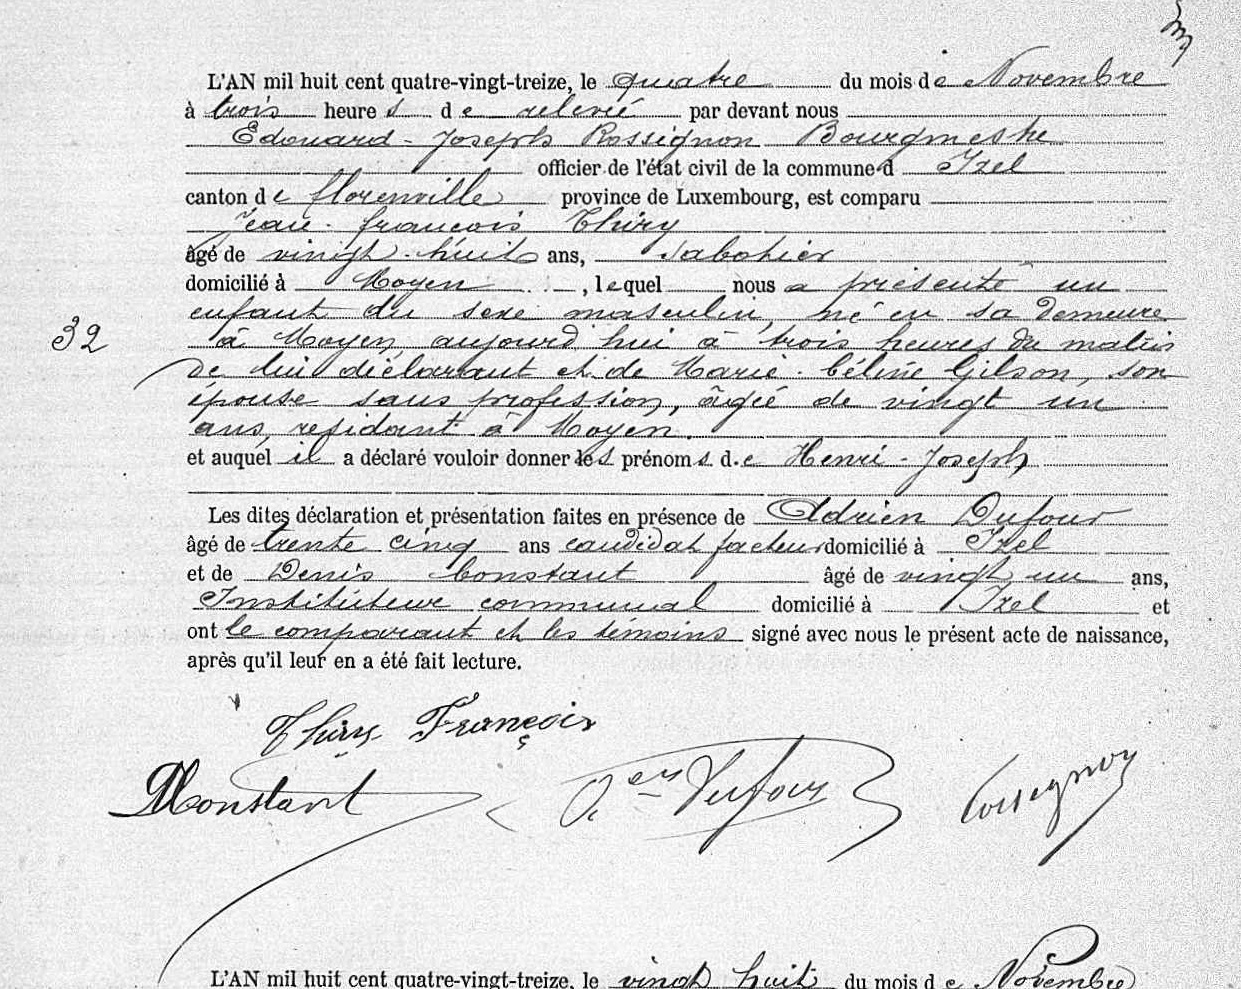 L'AN mil huit cent quatre-vingt-treize, le quatre du mois de Novembre
à trois heures de relevée par devant nous
Edouard-Joseph Rossignon Bourgmestre
officier de l'état civil de la commune d Izel
canton de florenville province de Luxembourg, est comparu
Jean-françois Thiry
âgé de vingt-huit ans, sabotier
domicilié à Moyen, lequel nous a présenté un
enfant du sexe masculin, né en sa demeure
à Moyen, aujourd'hui à trois heures du matin
32
de lui déclarant et de Marie-Céline Gilson, son
épouse sans profession, âgée de vingt un
ans, résidant à Moyen.
et auquel il a déclaré vouloir donner les prénoms de Henri-Joseph
Les dites déclaration et présentation faites en présence de Adrien Dufour
âgé de trente cinq ans candidat facteur domicilié à Izel
et de Denis Constant âgé de vingt un ans,
Instituteur communal domicilié à Izel et
ont le comparant et les témoins signé avec nous le présent acte de naissance,
après qu'il leur en a été fait lecture.
Thiry François
DConstant Aen Dufour Rossignon
L'AN mil huit cent quatre-vingt-treize, le vingt huit du mois de Novembre